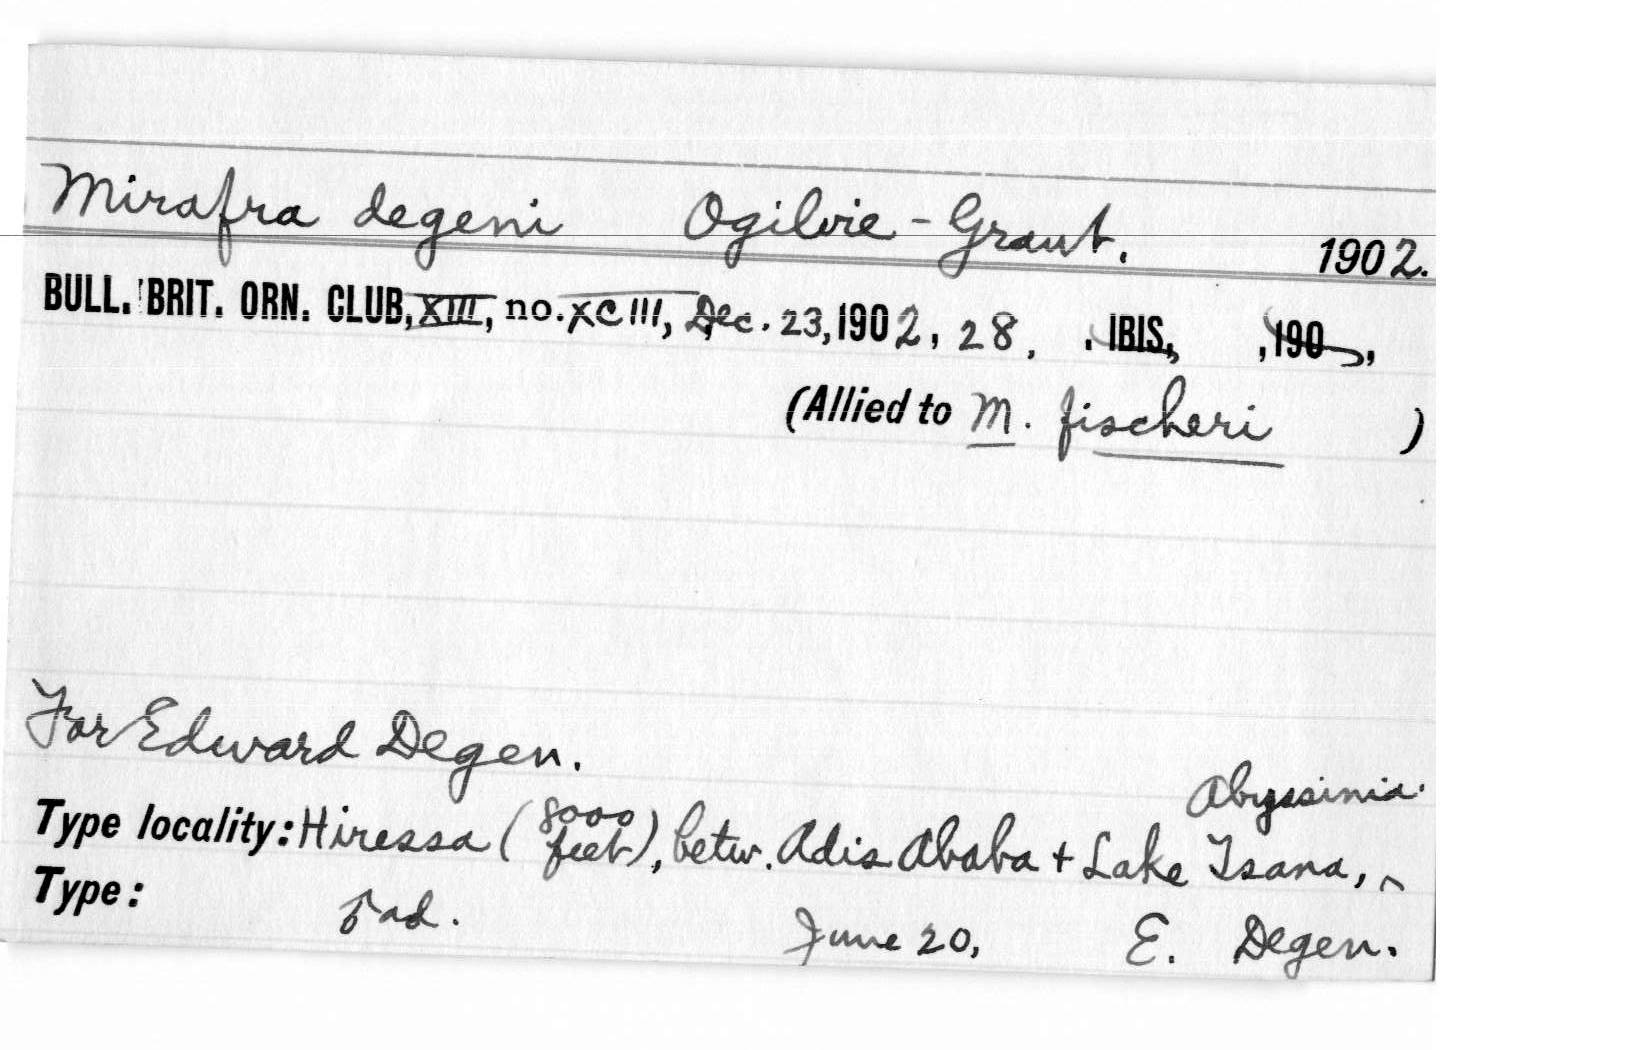 Mirafra degeni Ogilvie-Grant. 1902.
BULL. BRIT. ORN. CLUB, XIII, no. XCIII, Dec. 23, 1902, 28, . IBIS, , 190 ,
(Allied to M. fischeri )
For Edward Degen.
Abyssinia.
Type locality: Hiressa (8000 feet), betw. Adis Ababa + Lake Tsana, ^
Type: ad. June 20, E. Degen.